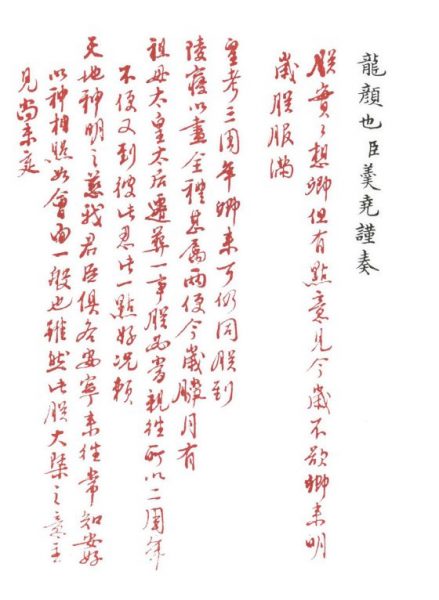 龍顔也臣羹堯謹奏
朕實々想卿但有點意見今歲不欲卿来明
歲朕服滿
皇考三周年卿来可仍同朕到
陵寢以盡全禮甚屬兩便今歲臘月有
祖母太皇太后遷葬一事朕必當親往所以二周年
不便又到彼此忍此一點好况賴
天地神明之慈我君臣俱各安寧来往常知安好
以神相照如會面一般也雖然此朕大槩之意主
見尚未定